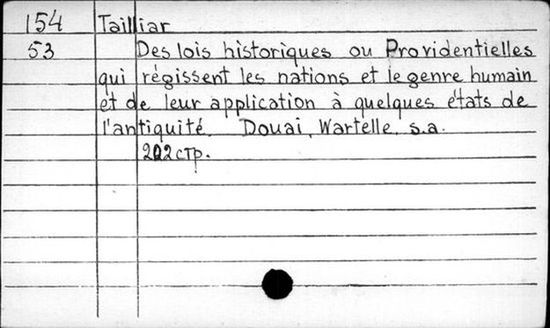 154 Tailliar
53 Des lois historiques ou Providentielles
qui régissent les nations et le genre humain
et de leur application à quelques états de
l'antiquité. Douai, Wartelle, s.a.
202 стр.